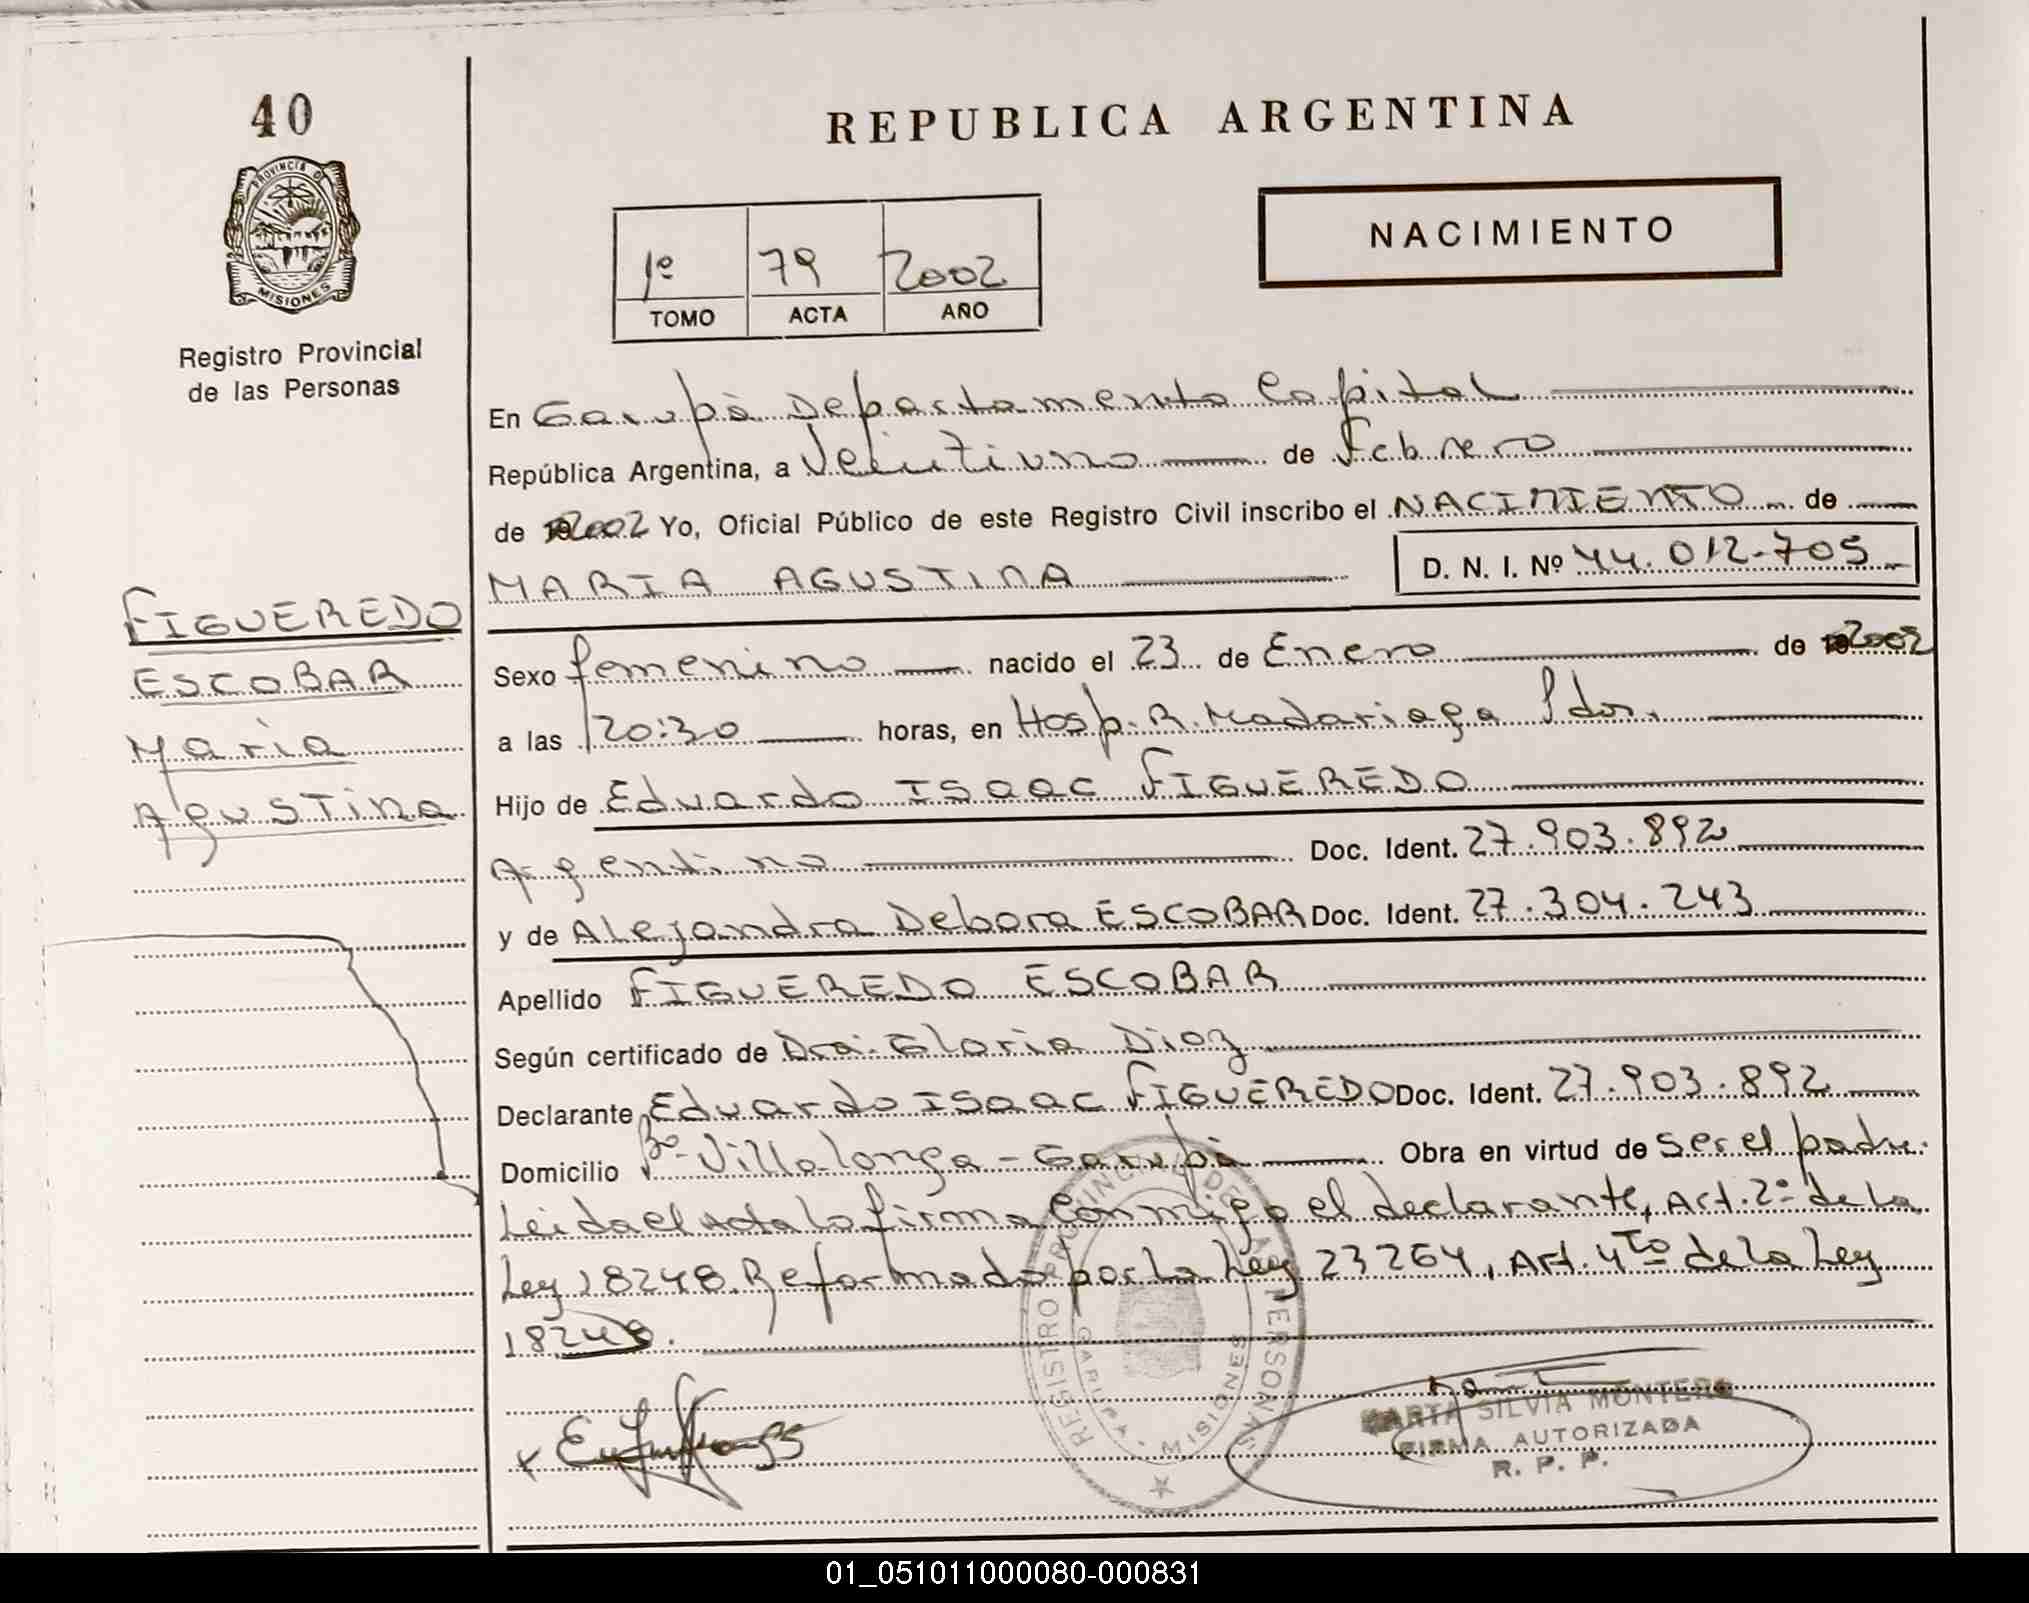 40
REPUBLICA ARGENTINA
PROVINCIA D
MISIONES
NACIMIENTO
1º 79 2002
TOMO ACTA AÑO
Registro Provincial
de las Personas
En Garupà Departamento Capital
República Argentina, a Veintiuno de Febrero
de 2002 Yo, Oficial Público de este Registro Civil inscribo el NACIMIENTO de
MARIA AGUSTINA D. N. I. Nº 44.012.705
FIGUEREDO
ESCOBAR
Maria
Agustina
Sexo femenino nacido el 23 de Enero de 2002
a las 20:30 horas, en Hosp. R. Madariaga Pdas.
Hijo de Eduardo ISaac FIGUEREDO
Argentino Doc. Ident. 27.903.892
y de Alejandra Debora ESCOBAR Doc. Ident. 27.304.243
Apellido FIGUEREDO ESCOBAR
Según certificado de Dra. Gloria Diaz
Declarante Eduardo ISaac FIGUEREDO Doc. Ident. 27.903.892
Domicilio Bº Villalonga - Garupà Obra en virtud de ser el padre.
Leida el Acta la firma conmigo el declarante, Art. 2º de la
Ley 18248. Reformado por la Ley 23264, Art. 4to de la Ley
18248.
REGISTRO PROVINCIAL DE LAS PERSONAS
GARUPA - MISIONES
MARTA SILVIA MONTERO
FIRMA AUTORIZADA
R. P. P.
01_051011000080-000831